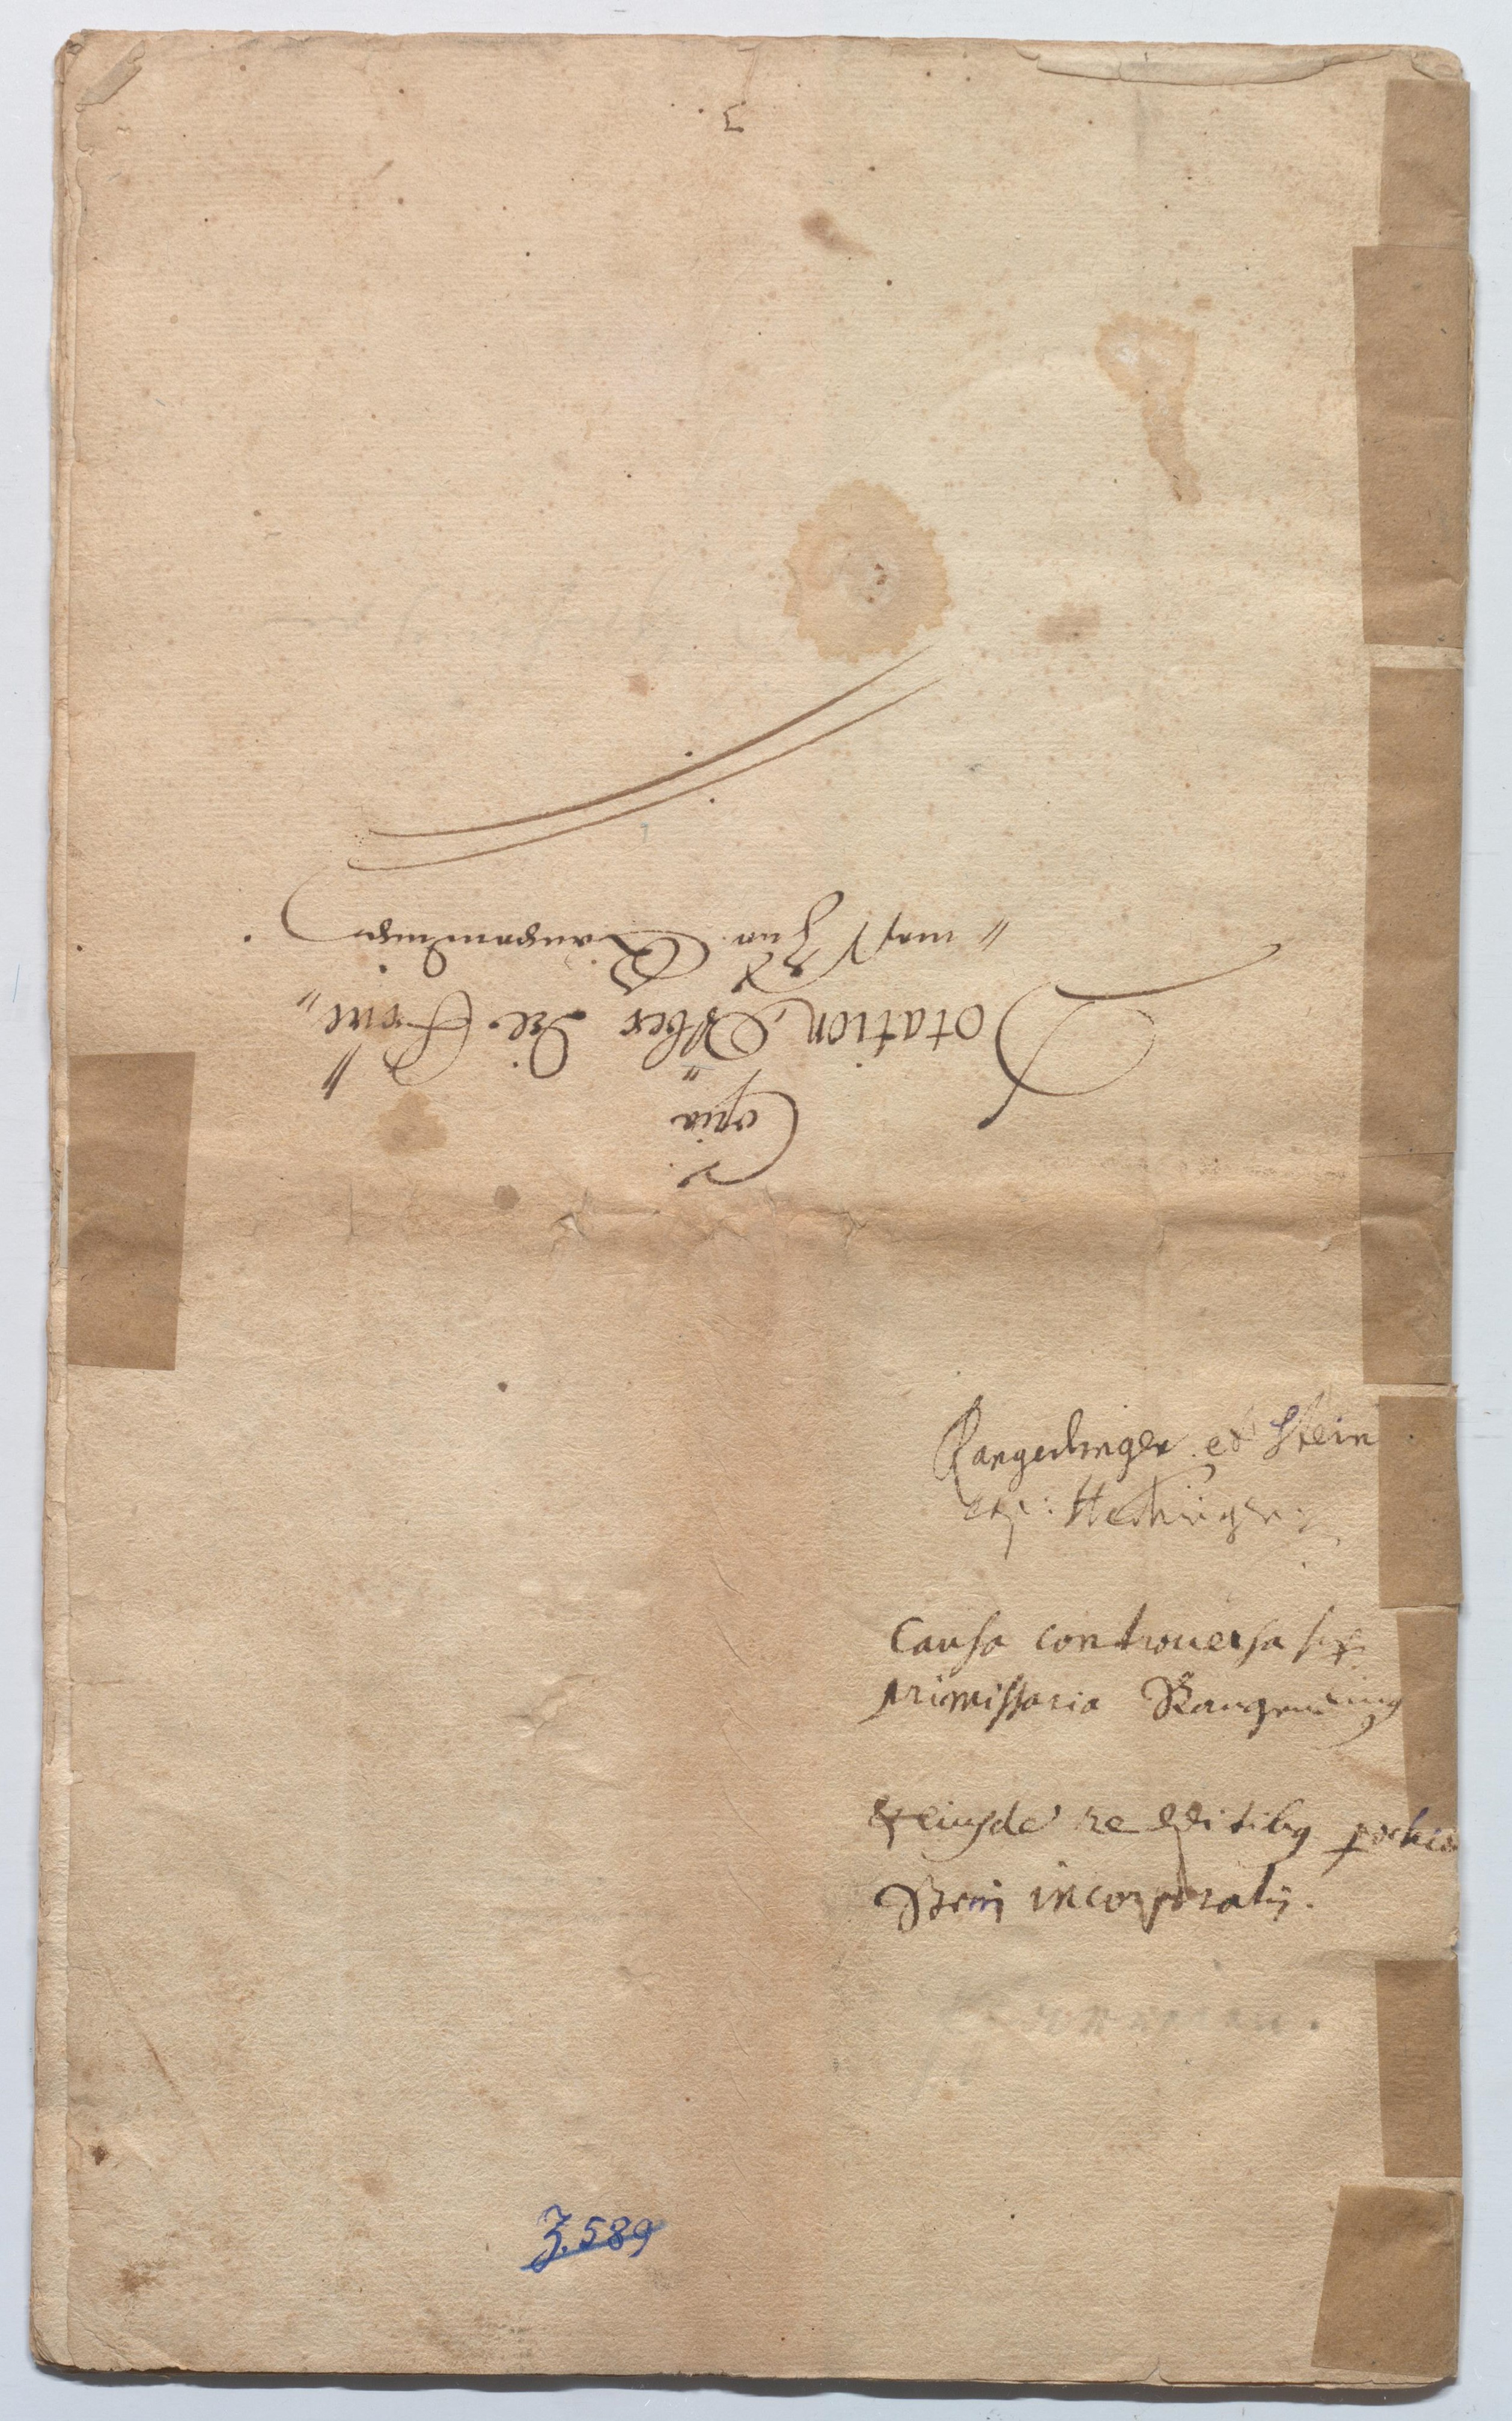 Copia
Dotation, Vber die Früe"
"mess Zue Rangendingen.
Rangendingen et Stein
cap: Hechingen:
Causa controuersa sup
primissaria Rangending
& eiusdē redditibus
Stein incorporatis.
Z. 589